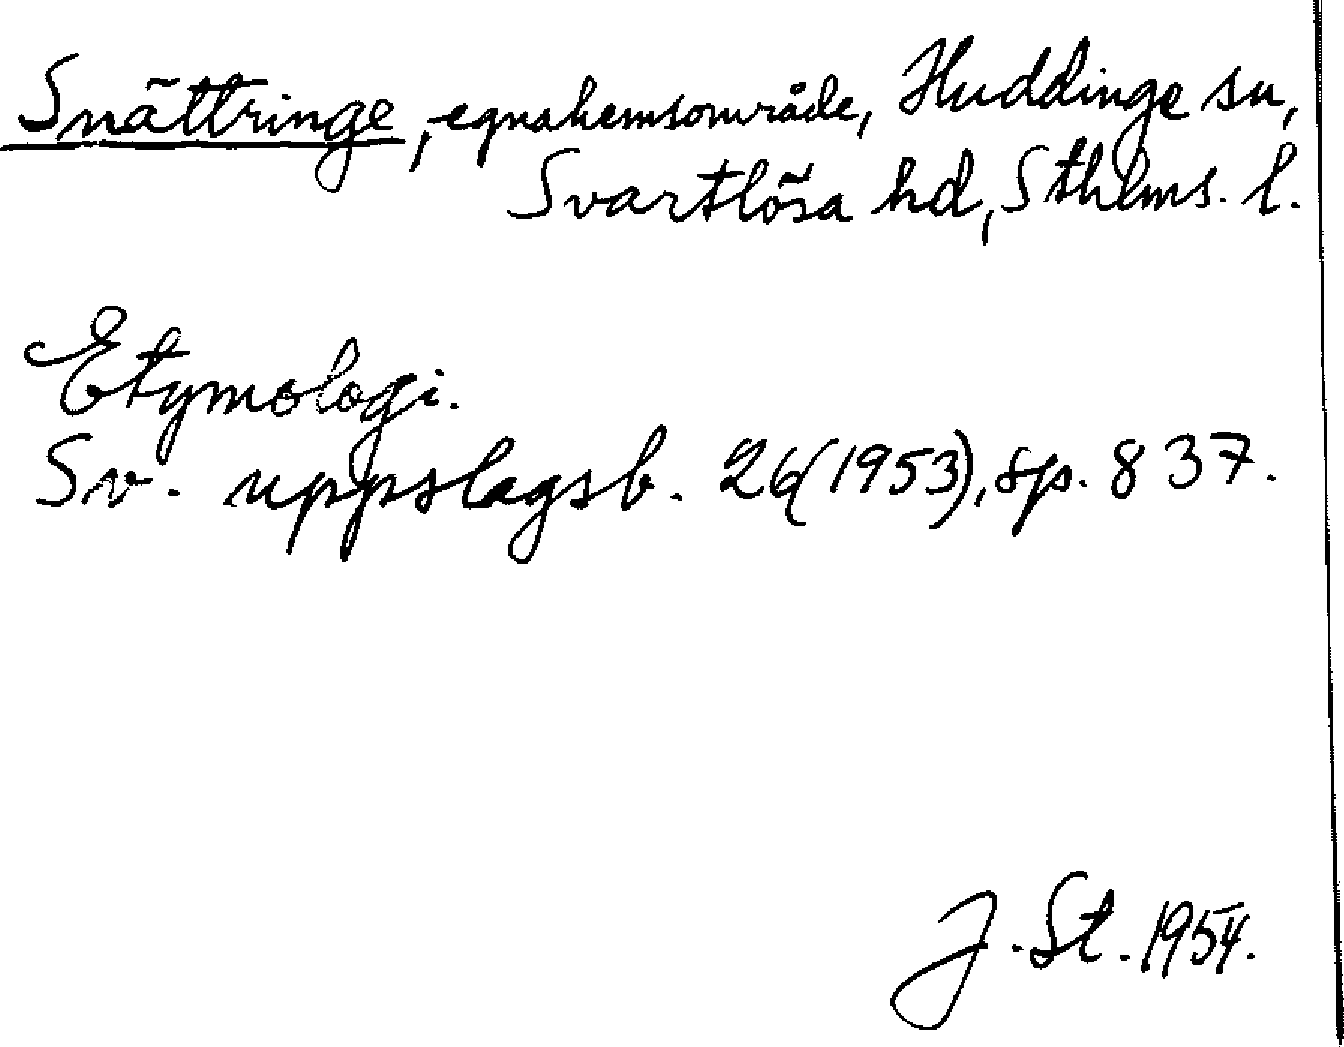 Snättringe, egnahemsområde, Huddinge sn,
Svartlösa hd, Sthlms. l.
Etymologi.
Sv. uppslagsb. 26(1953), sp. 837.
J. St. 1954.